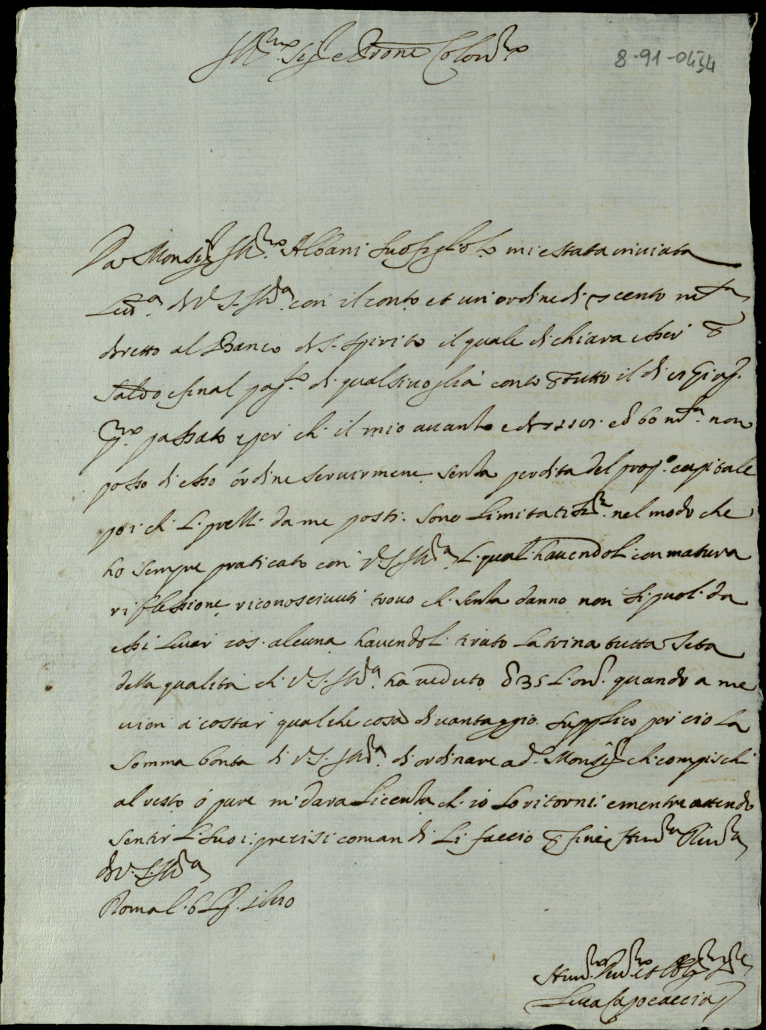 Ill.mo Sig.re e Pron.e Colen.mo
8-91-0434
Da Monsig.r Ill.mo Albani suo figliolo mi è stata inviata
di V.S. Ill.ma con il conto et un ordine di cento m.ta
diretto al Banco di S. Spirito il quale dichiara esser p
saldo e final pag.to di qualsivoglia conto p tutto il di
passato e per ch. il mio avanzo è di ed 60 m.ta non
posso di esso ordine servirmene senza perdita del prop.o capitale
poi ch. l. prezz. da me posti sono limitatiss.mi nel modo che
ho sempre praticato con V.S. Ill.ma l. quali havendol. con matura
riflessione riconosciuti trovo ch. senza danno non si puol da
essi levar cos. alcuna havendol. tirato la trina tutta seta
della qualità ch. V.S. Ill.ma ha veduto 35 l'on. quando a me
vien a costar qualche cosa di vantaggio. Supplico per ciò la
somma bontà di V.S. Ill.ma di ordinare a d. Monsig.r ch. compischi
al resto ò pure mi darà licenza ch. io lo ritorni e mentre attendo
sentir l. suoi precisi comandi li faccio p fine hum.ma river.za
di V.S. Ill.ma
Roma l. 6 1680
Hum.mo Dev.mo et Obl.mo Ser.re
Luca Capocaccia